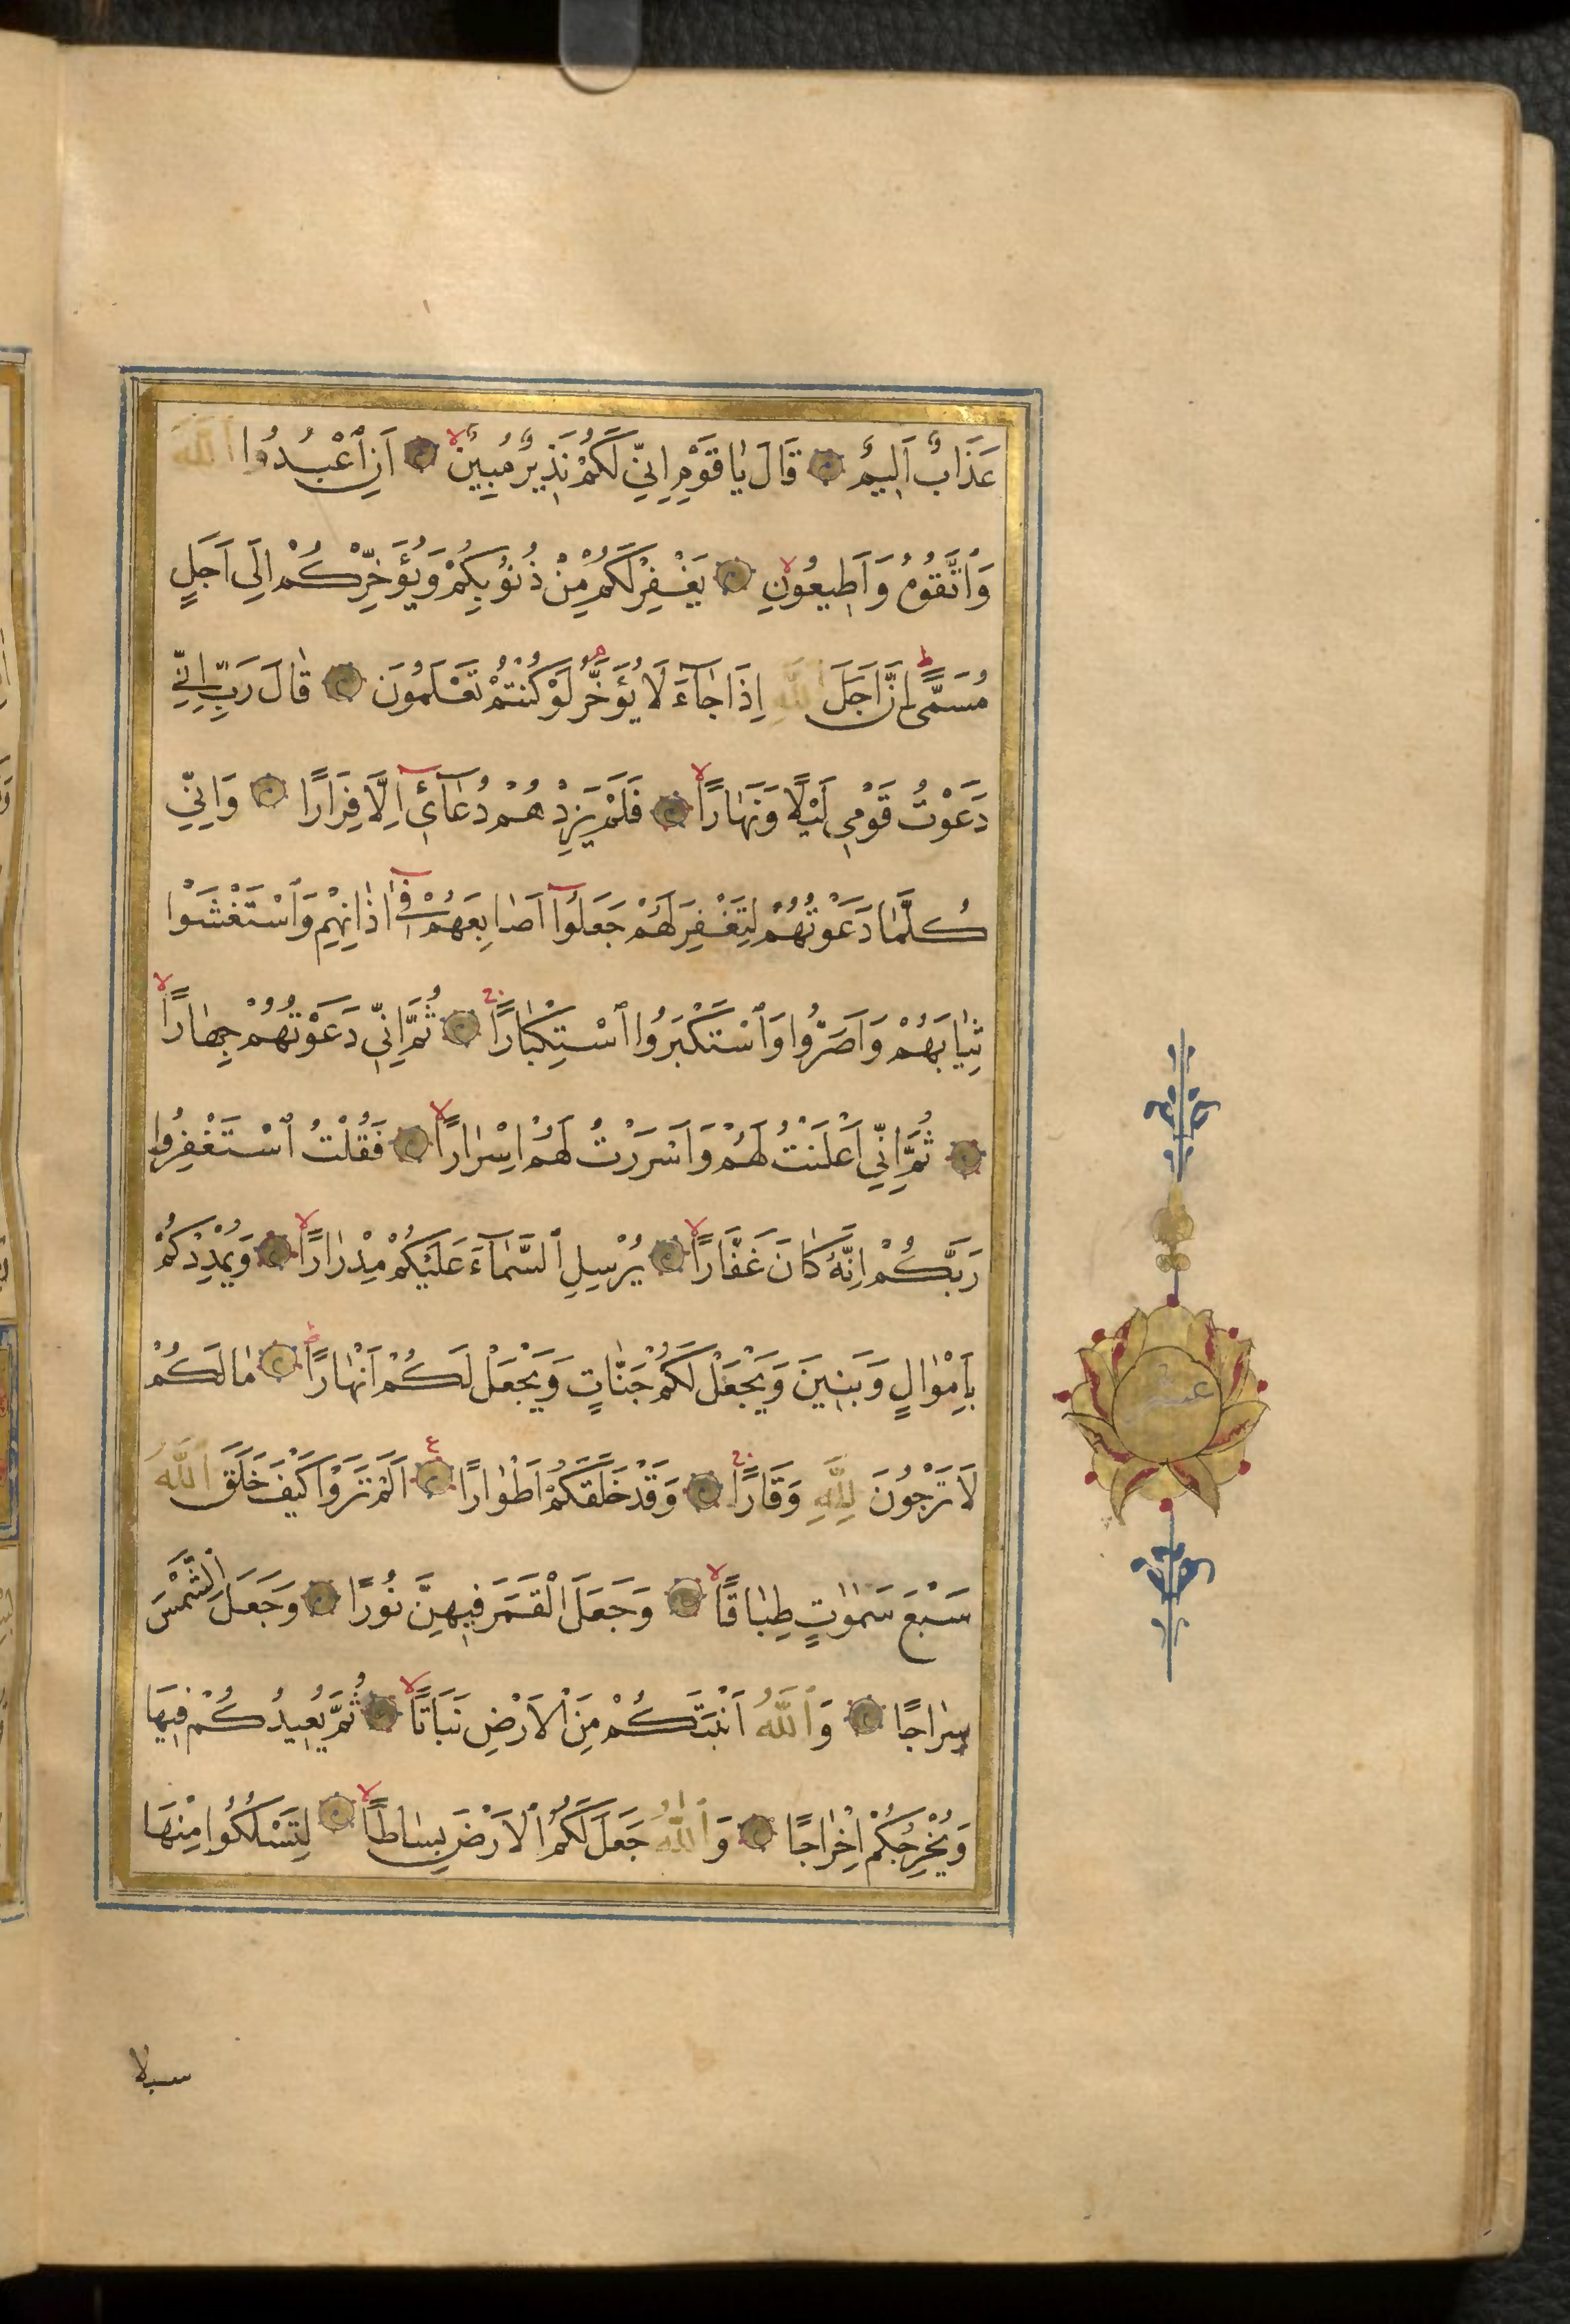 عَذَابٌ اَلِيمٌ قَالَ يَا قَوْمِ اِنّ۪ي لَكُمْ نَذِيرٌ مُبِينٌ لا اَنِ ٱعْبُدُوا ٱللّٰهَ
وَٱتَّقُوهُ وَاَطِيعُونِ لا يَغْفِرْ لَكُمْ مِنْ ذُنُوبِكُمْ وَيُؤَخِّرْكُمْ اِلَى اَجَلٍ
مُسَمًّى ط اِنَّ اَجَلَ ٱللّٰهِ اِذَا جَٓاءَ لَا يُؤَخَّرُ م لَوْ كُنْتُمْ تَعْلَمُونَ قَالَ رَبِّ اِنّ۪ي
دَعَوْتُ قَوْمِي لَيْلًا وَنَهَارًا لا فَلَمْ يَزِدْهُمْ دُعَٓائِٓي اِلَّا فِرَارًا وَاِنّ۪ي
كُلَّمَا دَعَوْتُهُمْ لِتَغْفِرَ لَهُمْ جَعَلُٓوا اَصَابِعَهُمْ ف۪ٓي اٰذَانِهِمْ وَٱسْتَغْشَوْا
ثِيَابَهُمْ وَاَصَرُّوا وَٱسْتَكْبَرُوا ٱسْتِكْبَارًا ج ثُمَّ اِنّ۪ي دَعَوْتُهُمْ جِهَارًا لا
ثُمَّ اِنّ۪ي اَعْلَنْتُ لَهُمْ وَاَسْرَرْتُ لَهُمْ اِسْرَارًا لا فَقُلْتُ ٱسْتَغْفِرُوا
رَبَّكُمْ اِنَّهُ كَانَ غَفَّارًا لا يُرْسِلِ ٱلسَّمَٓاءَ عَلَيْكُمْ مِدْرَارًا لا وَيُمْدِدْكُمْ
بِاَمْوَالٍ وَبَنِينَ وَيَجْعَلْ لَكُمْ جَنَّاتٍ وَيَجْعَلْ لَكُمْ اَنْهَارًا ط مَا لَكُمْ
لَا تَرْجُونَ لِلّٰهِ وَقَارًا ج وَقَدْ خَلَقَكُمْ اَطْوَارًا ع اَلَمْ تَرَوْا كَيْفَ خَلَقَ ٱللّٰهُ
سَبْعَ سَمٰوَاتٍ طِبَاقًا لا وَجَعَلَ الْقَمَرَ فِيهِنَّ نُورًا وَجَعَلَ الشَّمْسَ
سِرَاجًا وَٱللّٰهُ اَنْبَتَكُمْ مِنَ الْاَرْضِ نَبَاتًا لا ثُمَّ يُعِيدُكُمْ فِيهَا
وَيُخْرِجُكُمْ اِخْرَاجًا وَٱللّٰهُ جَعَلَ لَكُمُ ٱلْاَرْضَ بِسَاطًا لا لِتَسْلُكُوا مِنْهَا
عشر
سبلا